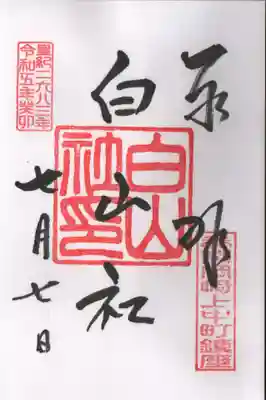 奉拝
上中町鎮座
白山社
白山
社印
皇紀二六八三年
令和五年癸卯
七月七日